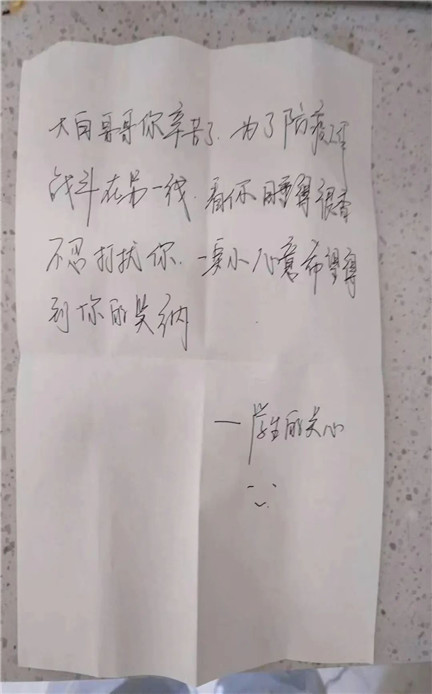 大白哥哥你辛苦了.为了防疫
战斗在第一线.看你睡得很香
不忍打扰你.一点小心意希望得
到你的笑纳
一学生的关心